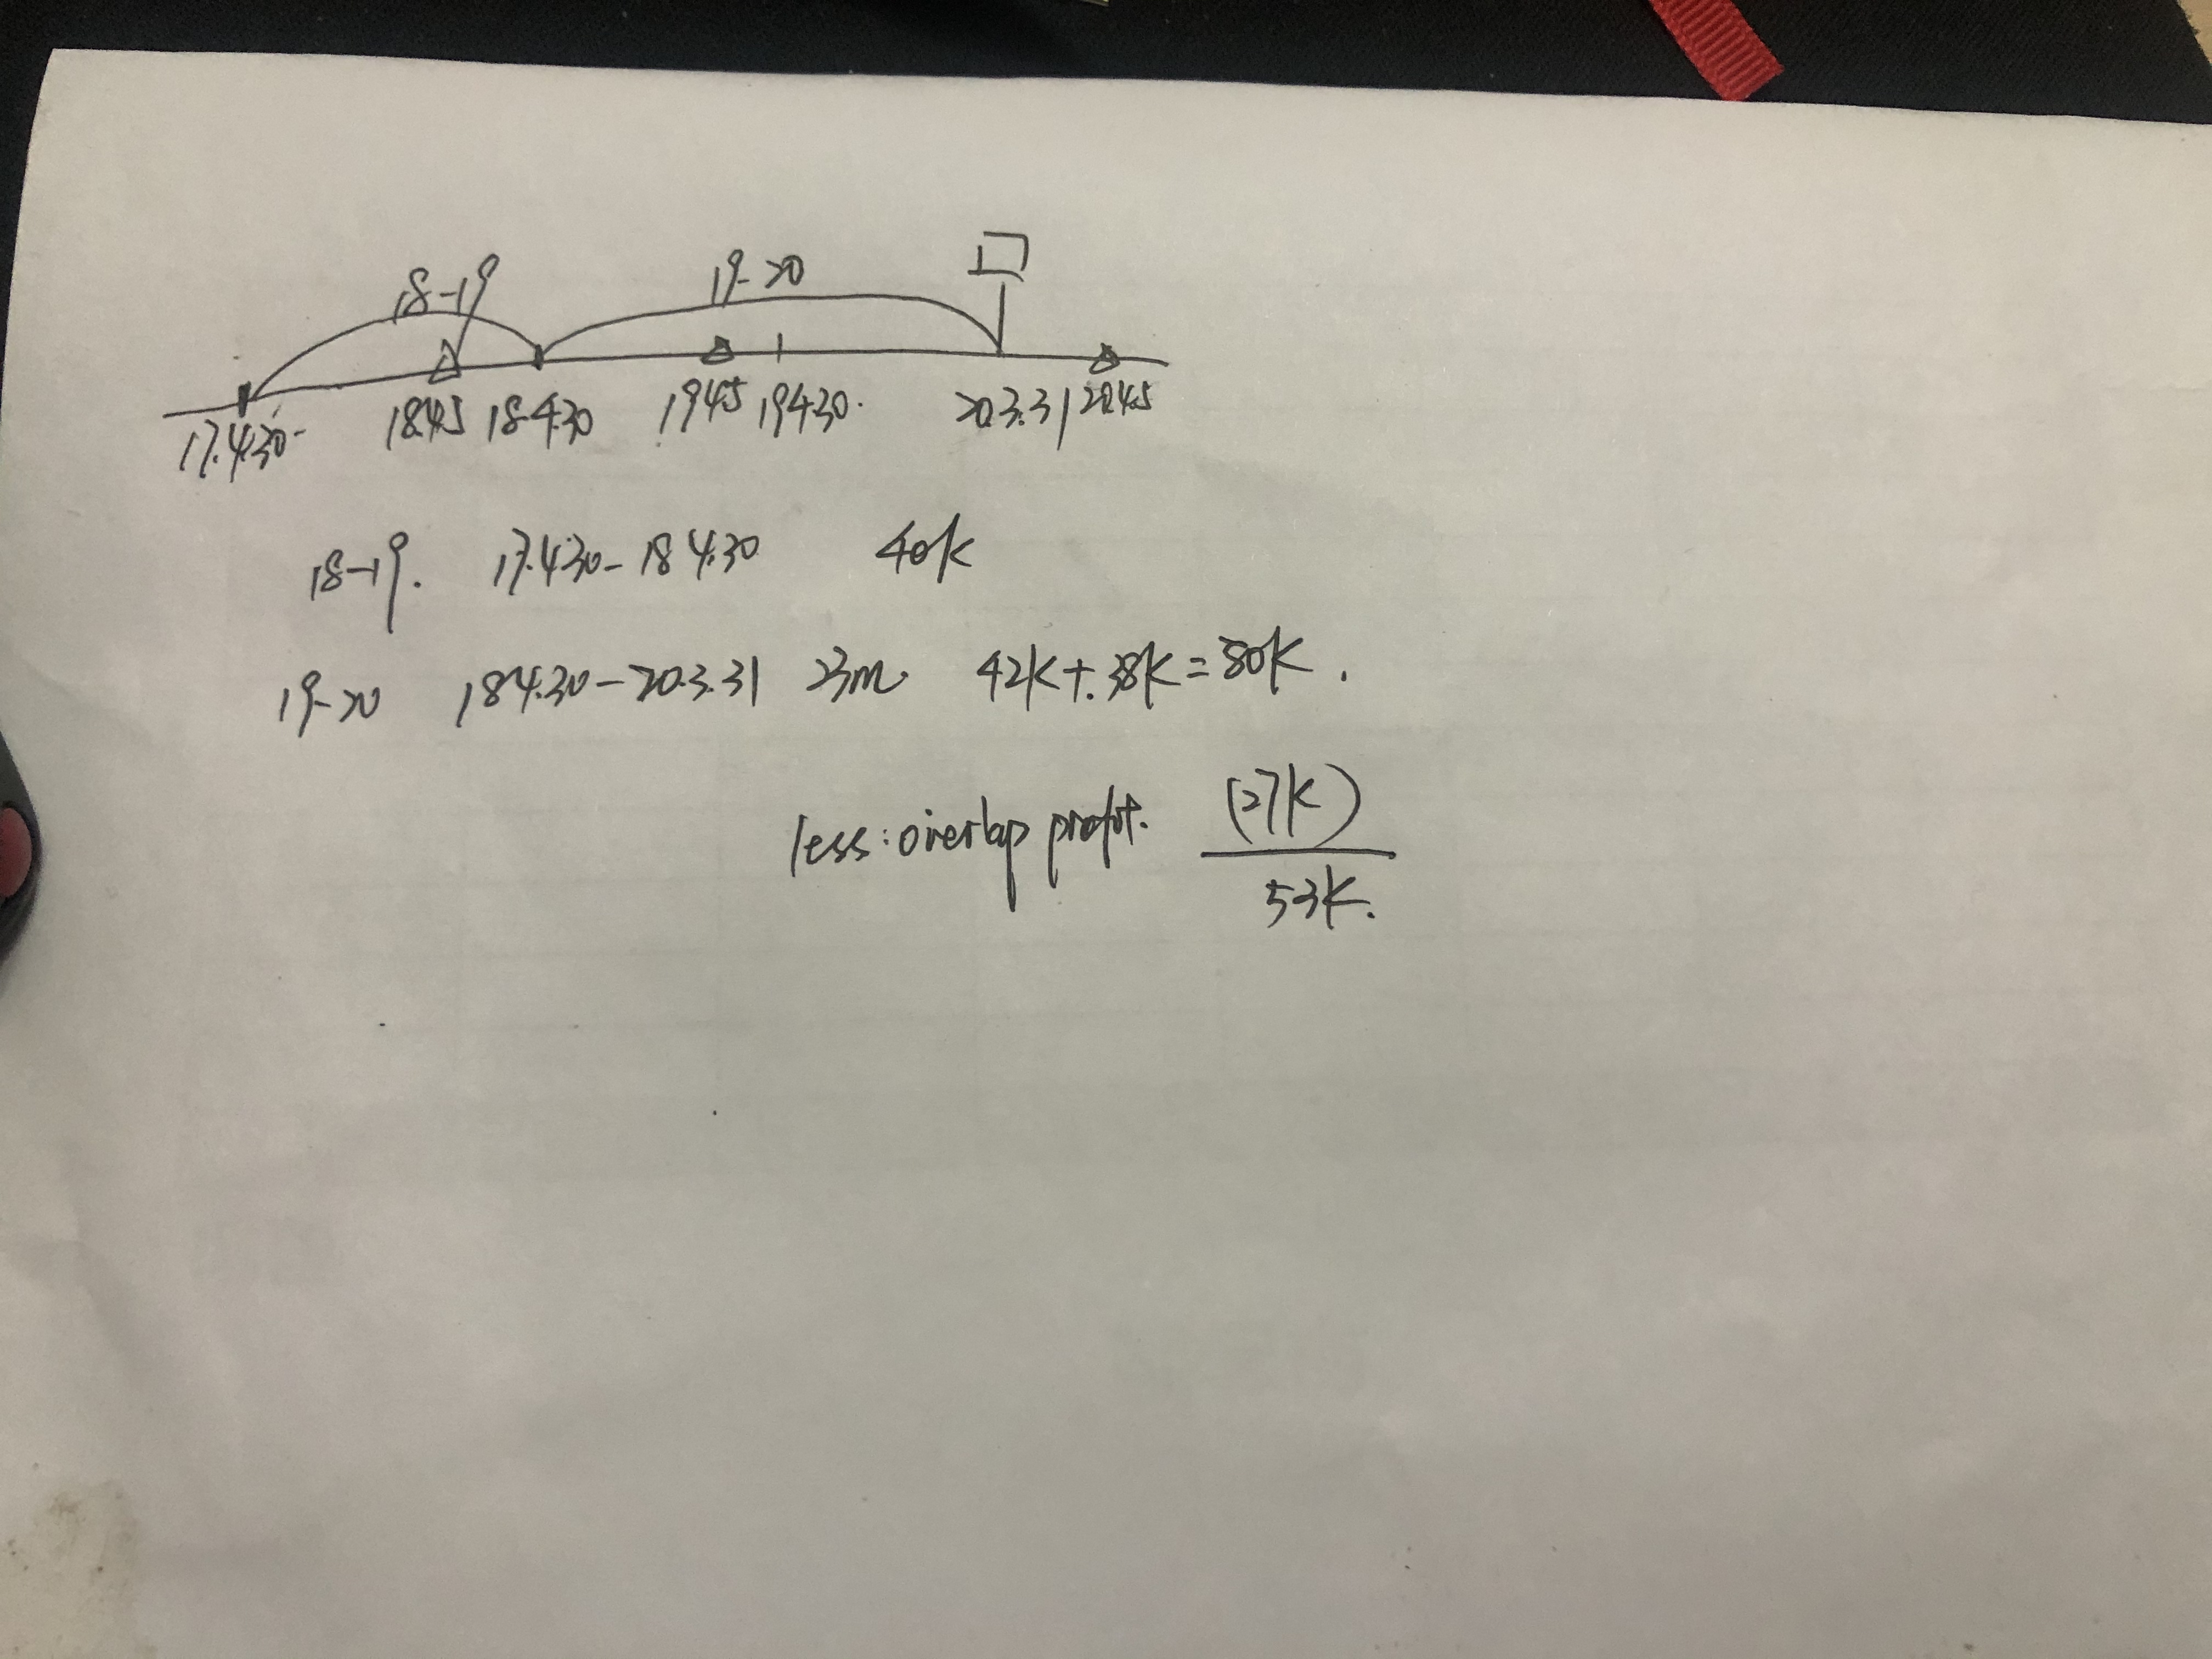 18-19 19-20
17.4.30 18.4.5 18.4.30 19.4.5 19.4.30. 20.3.31 20.4.5
18-19. 17.4.30-18.4.30 40K
19-20 18.4.30-20.3.31 23m. 42K+.38K=80K.
less: overlap profit. (27K)
53K.